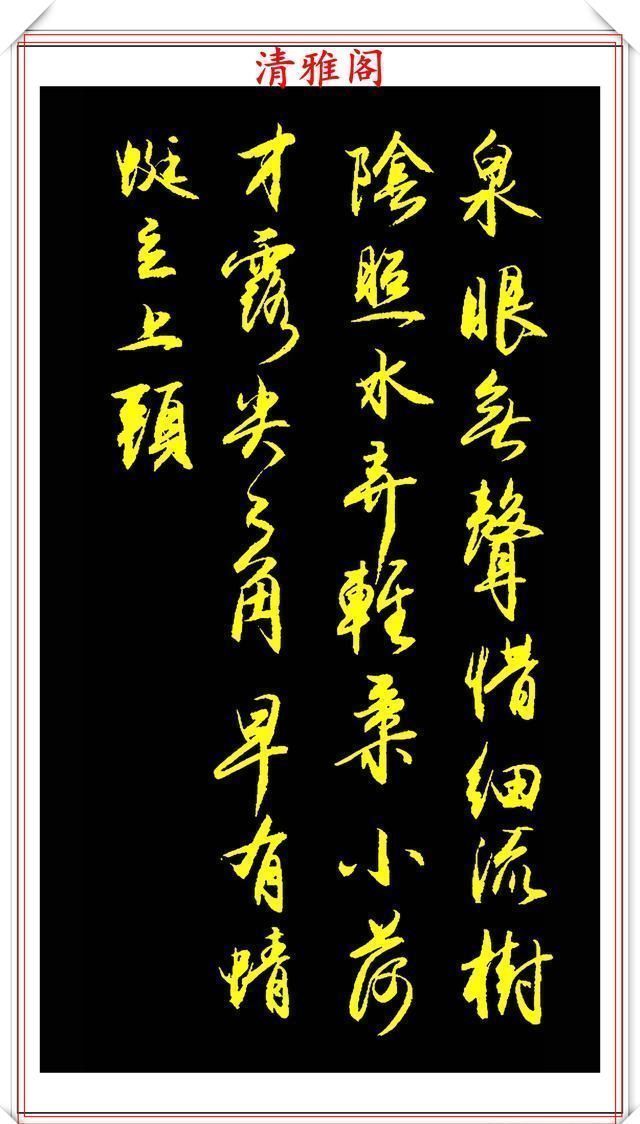 清雅阁
泉眼無聲惜細流樹
陰照水弄輕柔小荷
才露尖々角早有蜻
蜓立上頭